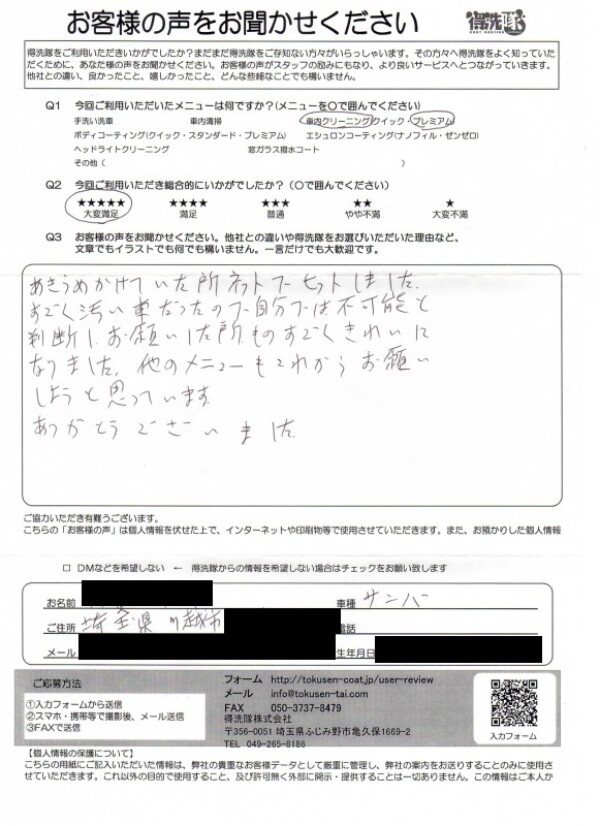 お客様の声をお聞かせください
得洗隊
得洗隊をご利用いただきいかがでしたか？まだまだ得洗隊をご存知ない方々がいらっしゃいます。その方々へ得洗隊をよく知っていた
だくために、あなた様の声をお聞かせください。お客様の声がスタッフの励みにもなり、より良いサービスへとつながっていきます。
他社との違い、良かったこと、嬉しかったこと、どんな些細なことでも構いません。
Q1 今回ご利用いただいたメニューは何ですか？(メニューを〇で囲んでください)
手洗い洗車 車内清掃 車内クリーニング(クイック・プレミアム)
ボディコーティング(クイック・スタンダード・プレミアム) エシュロンコーティング(ナノフィル・ゼンゼロ)
ヘッドライトクリーニング 窓ガラス撥水コート
その他( )
Q2 今回ご利用いただき総合的にいかがでしたか？(〇で囲んでください)
★★★★★ ★★★★ ★★★ ★★ ★
大変満足 満足 普通 やや不満 大変不満
Q3 お客様の声をお聞かせください。他社との違いや得洗隊をお選びいただいた理由など、
文章でもイラストでも何でも構いません。一言だけでも大歓迎です。
あきらめかけていた所ネットでヒットしました。
すごく汚い車だったので自分では不可能と
判断し、お願いした所ものすごくきれいに
なりました。他のメニューもこれからお願い
しようと思っています。
ありがとうございました
ご協力いただき有難うございます。
こちらの「お客様の声」は個人情報を伏せた上で、インターネットや印刷物等で使用させていただきます。また、お預かりした個人情報
□ DMなどを希望しない ← 得洗隊からの情報を希望しない場合はチェックをお願い致します
お名前 車種 サンバー
ご住所 埼玉県川越市 電話
メール 生年月日
ご応募方法
①入力フォームから送信
②スマホ・携帯等で撮影後、メール送信
③FAXで送信
フォーム http://tokusen-coat.jp/user-review
メール info@tokusen-tai.com
FAX 050-3737-8479
得洗隊株式会社
〒356-0051 埼玉県ふじみ野市亀久保1669-2
TEL 049-265-8186
入力フォーム
【個人情報の保護について】
こちらの用紙にご記入いただいた情報は、弊社の貴重なお客様データとして厳重に管理し、弊社の案内をお送りすることのみに使用さ
せていただきます。これ以外の目的で使用すること、及び許可無く外部に開示・提供することは一切ありません。この情報はご本人か